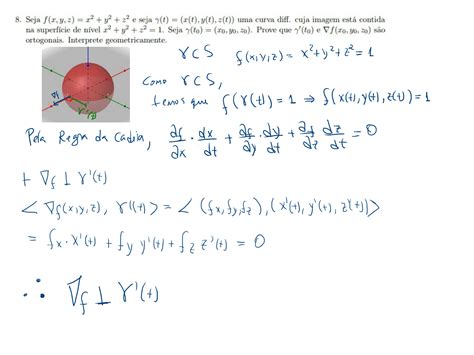 8. Seja f(x, y, z) = x² + y² + z² e seja γ(t) = (x(t), y(t), z(t)) uma curva diff. cuja imagem está contida
na superfície de nível x² + y² + z² = 1. Seja γ(t₀) = (x₀, y₀, z₀). Prove que γ'(t₀) e ∇f(x₀, y₀, z₀) são
ortogonais. Interprete geometricamente.
γ ⊂ S f(x,y,z) = x²+y²+z² = 1
Como γ ⊂ S,
temos que f(γ(t)) = 1 ⇒ f(x(t), y(t), z(t)) = 1
Pela Regra da Cadeia, ∂f/∂x · dx/dt + ∂f/∂y · dy/dt + ∂f/∂z dz/dt = 0
∇f ⊥ γ'(t)
< ∇f(x,y,z), γ'(t) > = < (fx, fy, fz), (x'(t), y'(t), z'(t)) >
= fx · x'(t) + fy y'(t) + fz z'(t) = 0
∴ ∇f ⊥ γ'(t)